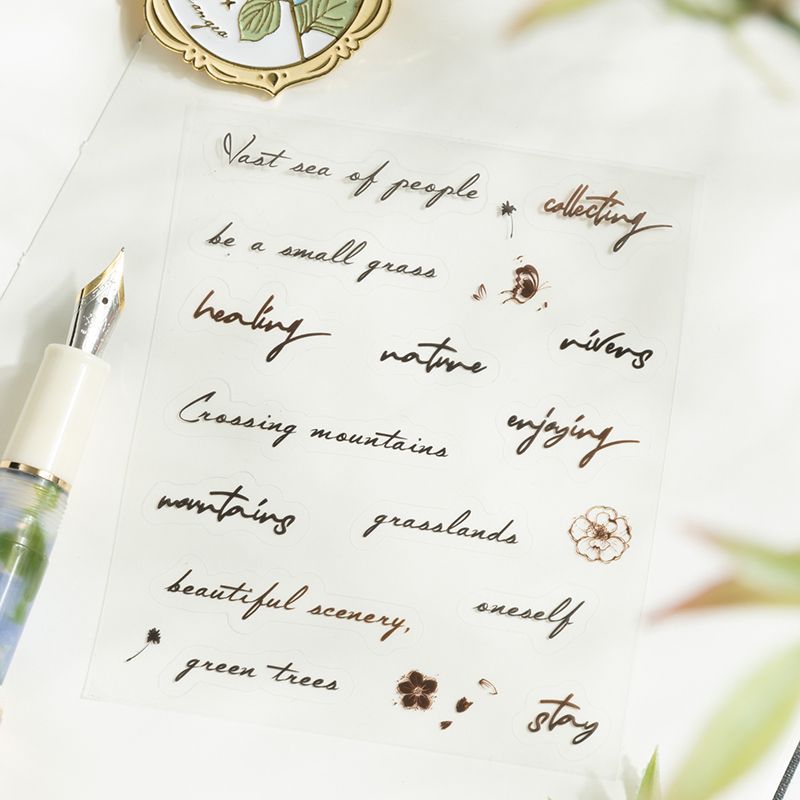 Vast sea of people
collecting
be a small grass
healing
nature
rivers
Crossing mountains
enjoying
mountains
grasslands
beautiful scenery,
oneself
green trees
stay